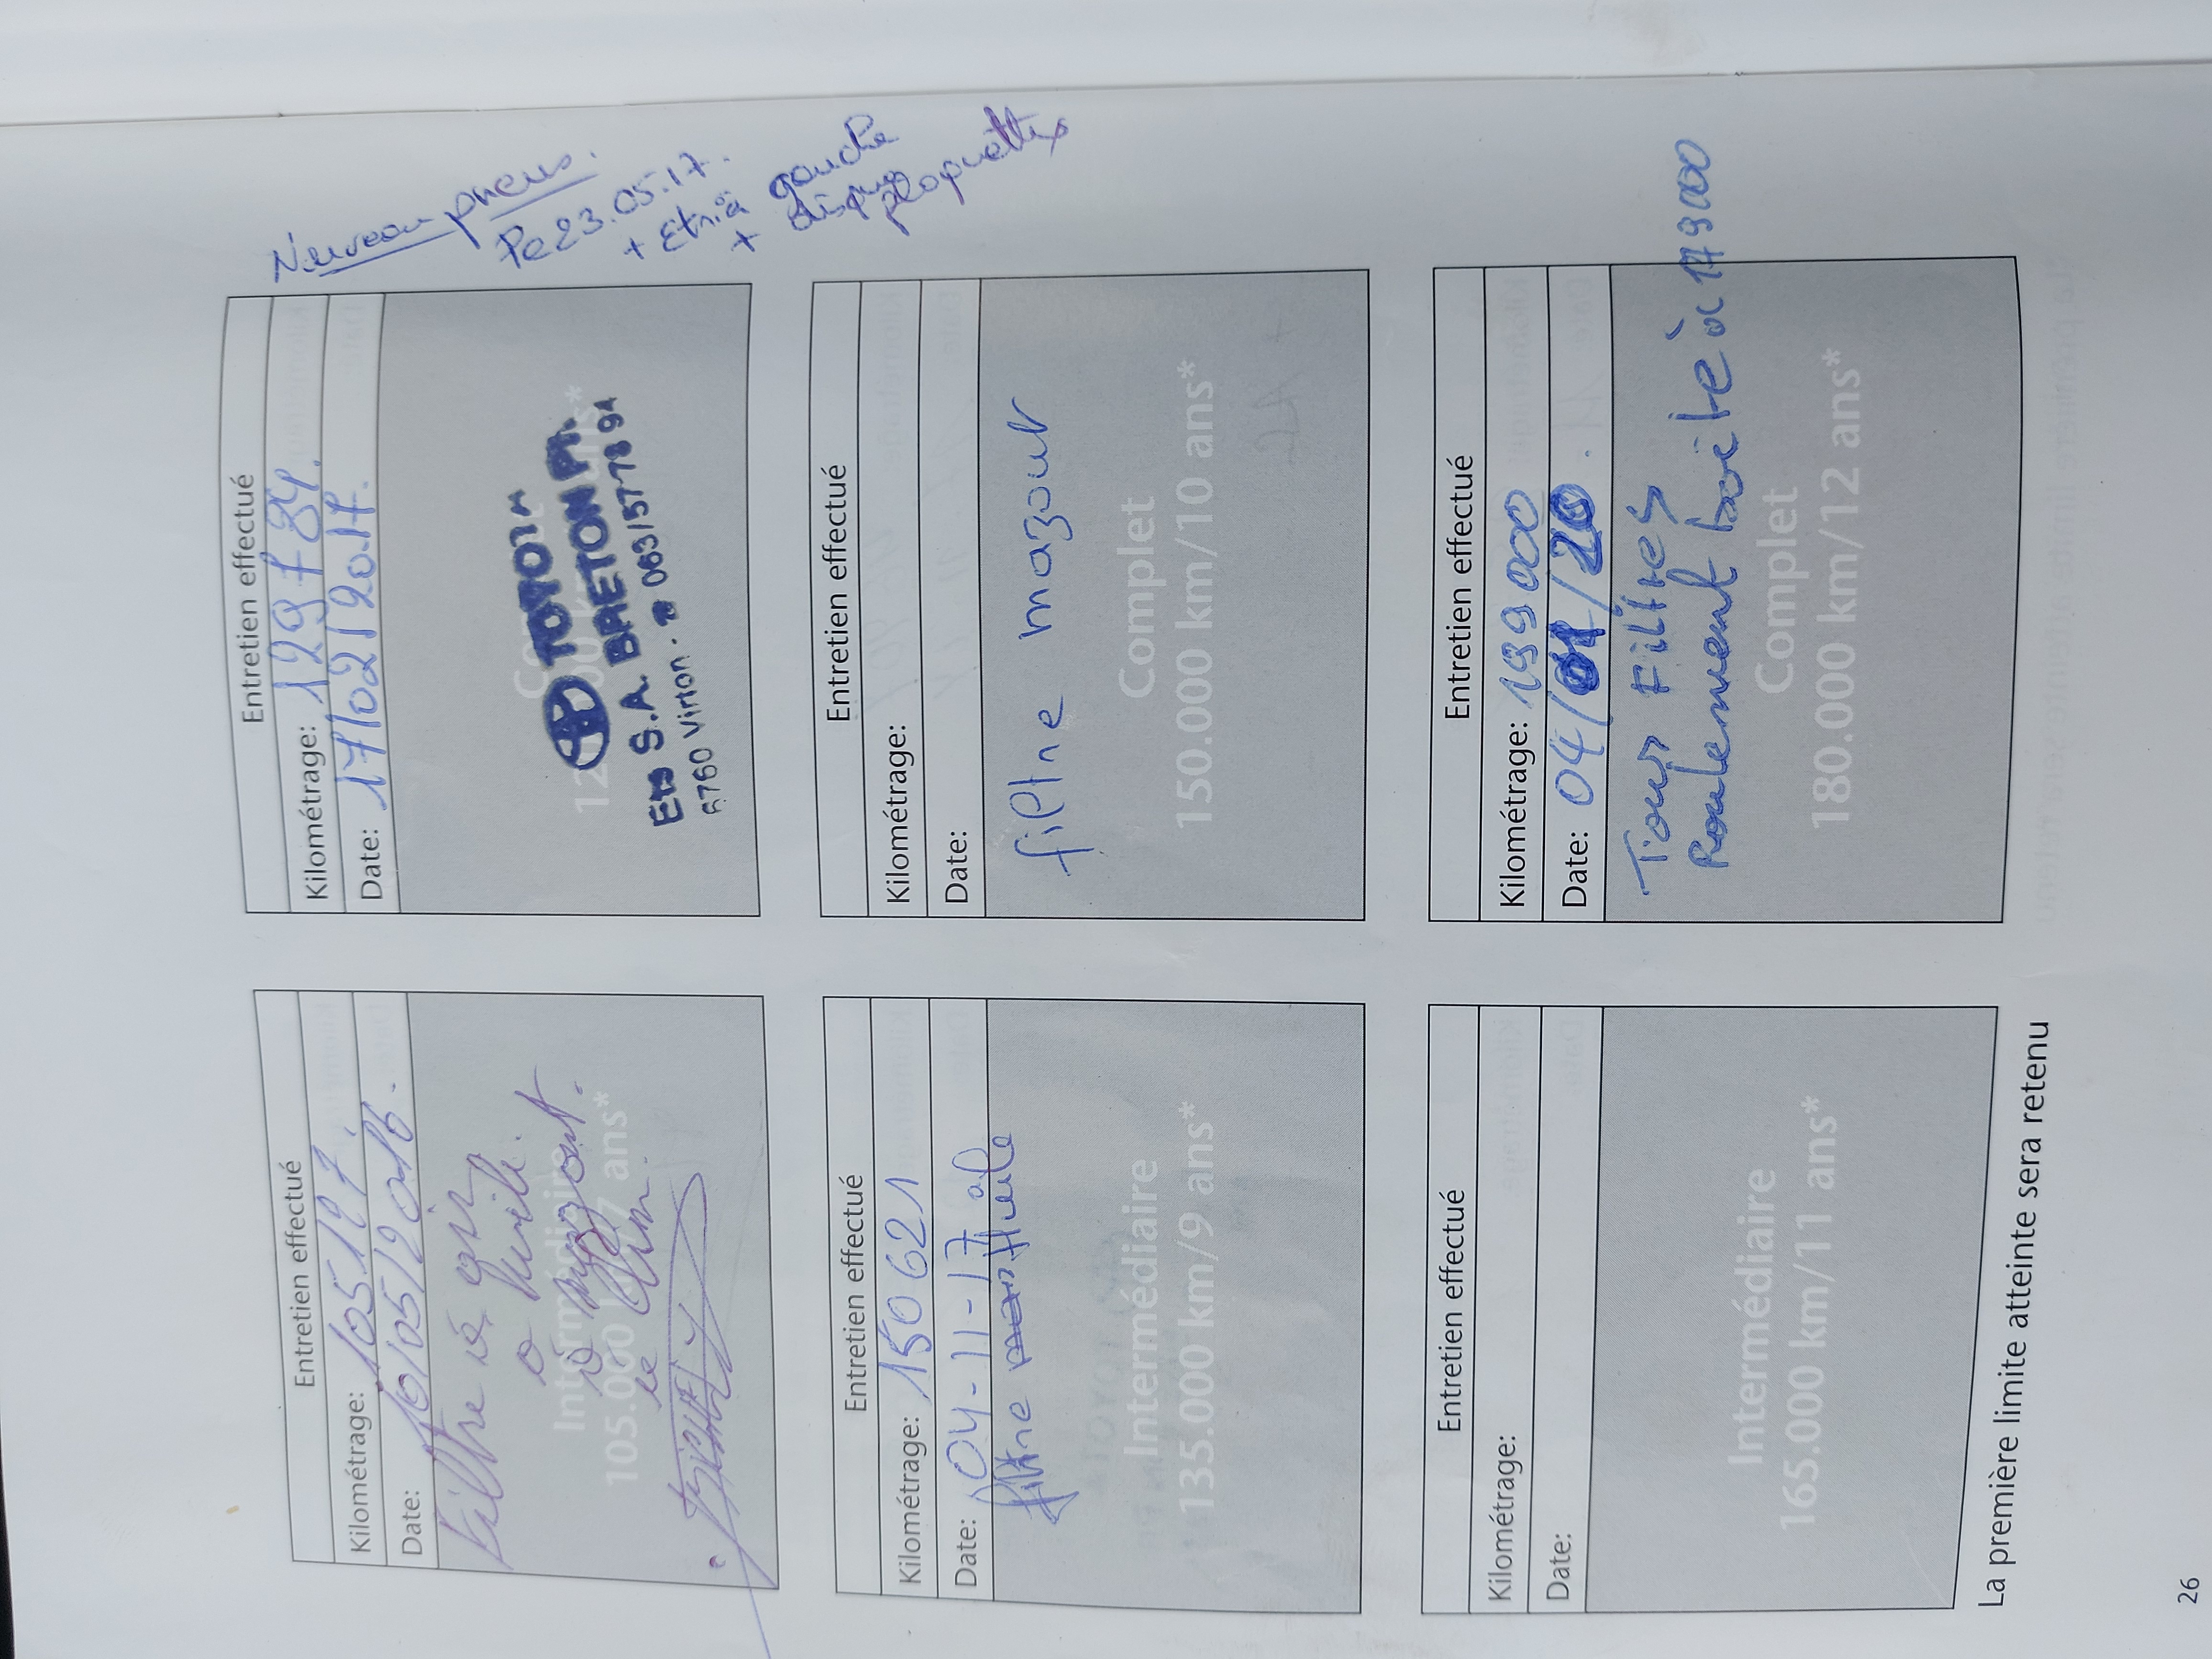 Entretien effectué
Kilométrage: 105127.
Date: 10/05/2016.
Filtre à air
à huile.
à mazout.
de Clim.
Intermédiaire
105.000 km/7 ans*
Entretien effectué
Kilométrage: 129784.
Date: 17/02/2017.
TOYOTA
Ets S.A. BRETON Ph.
6760 Virton. ☎ 063/57 78 91
Nouveau pneus.
Le 23.05.17.
+ Etrié gauche
+ disque
plaquettes
Entretien effectué
Kilométrage: 150621
Date: 04-11-17
filtre Huile
Intermédiaire
135.000 km/9 ans*
Entretien effectué
Kilométrage:
Date:
filtre mazout
Complet
150.000 km/10 ans*
Entretien effectué
Kilométrage:
Date:
Intermédiaire
165.000 km/11 ans*
Entretien effectué
Kilométrage: 199000
Date: 04/01/20.
Tous Filtres
Roulement boite à 179000
Complet
180.000 km/12 ans*
La première limite atteinte sera retenu
26